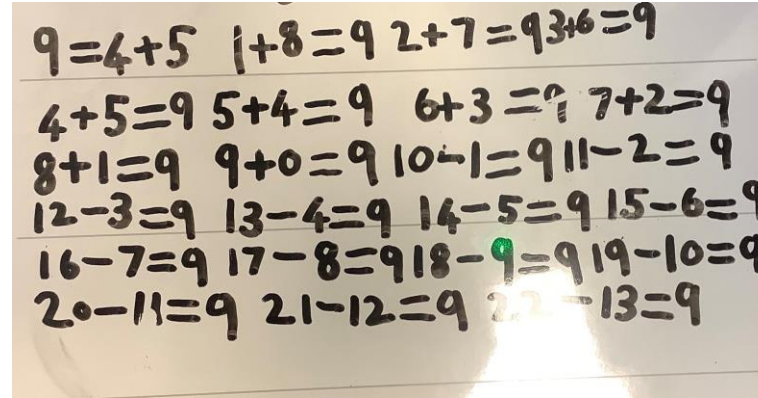 9=4+5 1+8=9 2+7=9 3+6=9
4+5=9 5+4=9 6+3=9 7+2=9
8+1=9 9+0=9 10-1=9 11-2=9
12-3=9 13-4=9 14-5=9 15-6=9
16-7=9 17-8=9 18-9=9 19-10=9
20-11=9 21-12=9 22-13=9